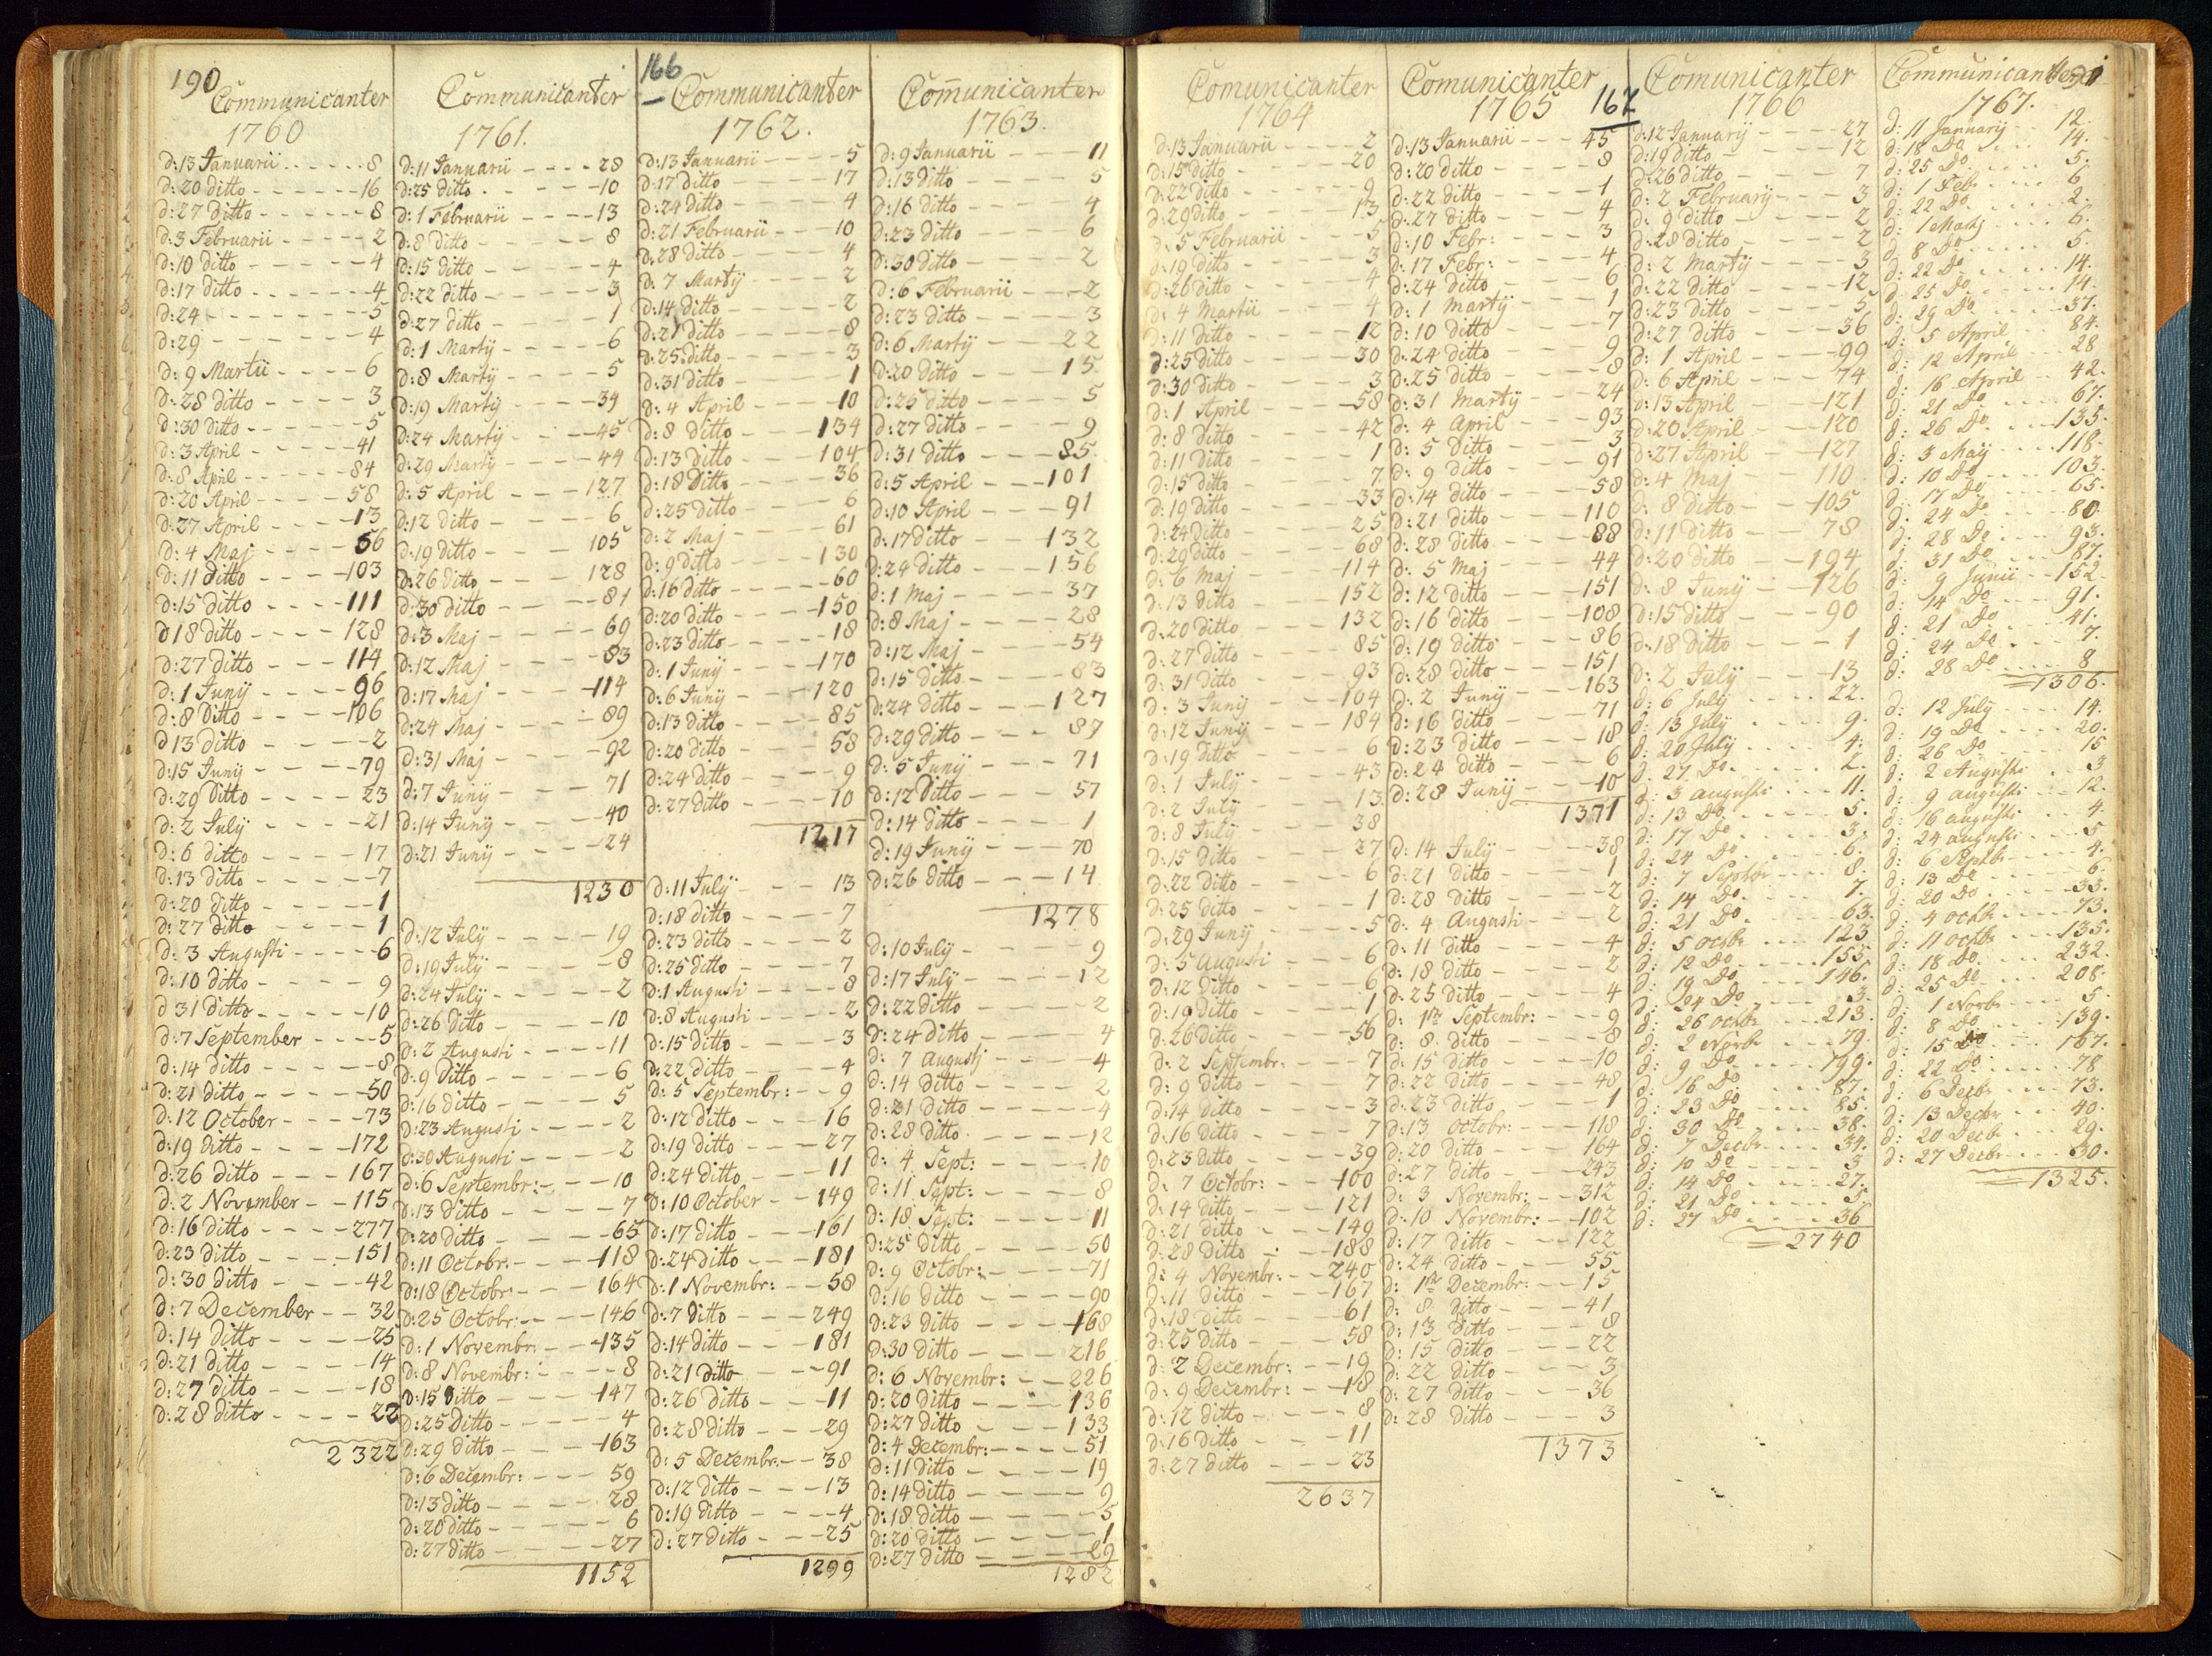 190
Communicanter
1760
d:13 Januarii - - - - 8
d:20 ditto - - - - 16
d:27 ditto - - - - 8
d:3 Februarii - - - - 2
d:10 ditto - - - - 4
d:17 ditto - - - - 4
d:24 - - - - 5
d:29 - - - - 4
d:9 Martii - - - - 6
d:28 ditto - - - - 3
d:30 ditto - - - - 5
d:3 April - - - - 41
d:8 April - - - - 84
d:20 April - - - - 58
d:27 April - - - - 13
d:4 Maj - - - - 56
d:11 ditto - - - - 103
d:15 ditto - - - - 111
d 18 ditto - - - - 128
d:27 ditto - - - - 114
d:1 Junij - - - - 96
d:8 ditto - - - - 106
d 13 ditto - - - - 2
d:15 Junij - - - - 79
d:29 ditto - - - - 23
d:2 Julij - - - - 21
d:6 ditto - - - - 17
d:13 ditto - - - - 7
d:20 ditto - - - - 1
d:27 ditto - - - - 1
d:3 Augusti - - - - 6
d:10 ditto - - - - 9
d 31 ditto - - - - 10
d:7 September - - - - 5
d:14 ditto - - - - 8
d:21 ditto - - - - 50
d:12 October - - - - 73
d:19 ditto - - - - 172
d:26 ditto - - - 167
d:2 November - - 115
d:16 ditto - - - - 277
d:23 ditto - - - - 151
d:30 ditto - - - - 42
d:7 December - - 32
d:14 ditto - - - - 25
d:21 ditto - - - - 14
d:27 ditto - - - - 18
d:28 ditto - - - - 22
2322
Communicanter
1761.
d:11 Januarii - - - - 28
d:25 ditto - - - - 10
d:1 Februarii - - - - 13
d:8 ditto - - - - 8
d:15 ditto - - - - 4
d:22 ditto - - - - 3
d:27 ditto - - - - 1
d:1 Martij - - - - 6
d:8 Martij - - - - 5
d:19 Martij - - - - 39
d:24 Martij - - - - 45
d:29 Martij - - - - 44
d:5 April - - - 127
d:12 ditto - - - - 6
d:19 ditto - - - - 105
d:26 ditto - - - - 128
d:30 ditto - - - - 81
d:3 Maj - - - - 69
d:12 Maj - - - - 83
d:17 Maj - - - - 114
d:24 Maj - - - - 89
d:31 Maj - - - - 92
d:7 Junij - - - - 71
d:14 Junij - - - - 40
d:21 Junij - - - - 24
1230
d:12 Julij - - - - 19
d:19 Julij - - - - 8
d:24 Julij - - - - 2
d:26 ditto - - - - 10
d:2 Augusti - - - - 11
d:9 ditto - - - - 6
d:16 ditto - - - - 5
d:23 Augusti - - - - 2
d:30 Augusti - - - - 2
d:6 Septembr: - - - 10
d:13 ditto - - - - 7
d:20 ditto - - - - 65
d:11 Octobr: - - - 118
d:18 Octobr: - - - 164
d:25 Octobr: - - - 146
d:1 Novembr: - - 135
d:8 Novembr: - - 8
d:15 ditto - - - 147
d:25 ditto - - - - 4
d:29 ditto - - - 163
d:6 Decembr: - - - 59
d:13 ditto - - - - 28
d:20 ditto - - - - 6
d:27 ditto - - - - 27
1152
166
Communicanter
1762.
d:13 Januarii - - - - 5
d:17 ditto - - - - 17
d:24 ditto - - - - 4
d:21 Februarii - - - 10
d:28 ditto - - - - 4
d:7 Martij - - - - 2
d:14 ditto - - - - 2
d:21 ditto - - - - 8
d:25 ditto - - - - 3
d:31 ditto - - - - 1
d:4 April - - - - 10
d:8 ditto - - - 134
d:13 ditto - - - 104
d:18 ditto - - - - 36
d:25 ditto - - - - 6
d:2 Maj - - - - 61
d:9 ditto - - - - 130
d:16 ditto - - - - 60
d:20 ditto - - - - 150
d:23 ditto - - - - 18
d:1 Junij - - - - 170
d:6 Junij - - - 120
d:13 ditto - - - - 85
d:20 ditto - - - - 58
d:24 ditto - - - - 9
d:27 ditto - - - - 10
1217
d:11 Julij - - - 13
d:18 ditto - - - - 7
d:23 ditto - - - - 2
d:25 ditto - - - - 7
d:1 Augusti - - - - 8
d:8 Augusti - - - - 2
d:15 ditto - - - - 3
d:22 ditto - - - - 4
d:5 Septembr: - - 9
d:12 ditto - - - 16
d:19 ditto - - - 27
d:24 ditto - - - 11
d:10 October - - 149
d:17 ditto - - - 161
d:24 ditto - - - 181
d:1 Novembr: - - 58
d:7 ditto - - - 249
d:14 ditto - - - 181
d:21 ditto - - - 91
d:26 ditto - - - 11
d:28 ditto - - - 29
d:5 Decembr: - - 38
d:12 ditto - - - 13
d:19 ditto - - - 4
d:27 ditto - - - 25
1299
Comunicanter
1763.
d:9 Januarii - - - 11
d:13 ditto - - - 5
d:16 ditto - - - 4
d:23 ditto - - - 6
d:30 ditto - - - 2
d:6 Februarii - - - 2
d:23 ditto - - - - 3
d:6 Martij - - - 22
d:20 ditto - - - 15
d:25 ditto - - - 5
d:27 ditto - - - 9
d:31 ditto - - - 85
d:5 April - - - 101
d:10 April - - - 91
d:17 ditto - - - 132
d:24 ditto - - - 156
d:1 Maj - - - - 37
d:8 Maj - - - - 28
d:12 Maj - - - - 54
d:15 ditto - - - - 83
d:24 ditto - - - 127
d:29 ditto - - - 87
d:5 Junij - - - - 71
d:12 ditto - - - - 57
d:14 ditto - - - - 1
d:19 Junij - - - - 70
d:26 ditto - - - 14
1278
d:10 Julij - - - - 9
d:17 Julij - - - - 12
d:22 ditto - - - - 2
d:24 ditto - - - - 4
d:7 Augustj - - - - 4
d:14 ditto - - - - 2
d:21 ditto - - - - 4
d:28 ditto - - - - 12
d:4 Sept: - - - - 10
d:11 Sept: - - - - 8
d:18 Sept: - - - - 11
d:25 ditto - - - - 50
d:9 Octobr: - - - 71
d:16 ditto - - - - 90
d:23 ditto - - - - 168
d:30 ditto - - - 216
d:6 Novembr: - - 226
d:20 ditto - - - 136
d:27 ditto - - - 133
d:4 Decembr: - - - 51
d:11 ditto - - - - 19
d:14 ditto - - - - 9
d:18 ditto - - - - 5
d:20 ditto - - - - 1
d:27 ditto - - - - 29
1282
Comunicanter
1764
d:13 Januarii - - - - 2
d:15 ditto - - - - 20
d:22 ditto - - - - 9
d:29 ditto - - - - 13
d:5 Februarii - - - 5
d:19 ditto - - - - 3
d:26 ditto - - - - 4
d:4 Martii - - - - 4
d:11 ditto - - - - 12
d:25 ditto - - - - 30
d:30 ditto - - - - 3
d:1 April - - - - 58
d:8 ditto - - - - 42
d:11 ditto - - - - 1
d:15 ditto - - - - 7
d:19 ditto - - - - 33
d:24 ditto - - - - 25
d:29 ditto - - - - 68
d:6 Maj - - - - 114
d:13 ditto - - - - 152
d:20 ditto - - - - 132
d:27 ditto - - - - 85
d:31 ditto - - - - 93
d:3 Junij - - - - 104
d:12 Junij - - - - 184
d:19 ditto - - - - 6
d:1 Julij - - - - 43
d:2 Julij - - - - 13
d:8 Julij - - - - 38
d:15 ditto - - - - 27
d:22 ditto - - - - 6
d:25 ditto - - - - 1
d:29 Junij - - - - 5
d:5 Augusti - - - 6
d:12 ditto - - - - 6
d:19 ditto - - - - 1
d:26 ditto - - - - 56
d:2 Septembr: - - - 7
d:9 ditto - - - - 7
d:14 ditto - - - - 3
d:16 ditto - - - - 7
d:23 ditto - - - - 39
d:7 Octobr: - - - 100
d:14 ditto - - - - 121
d:21 ditto - - - 149
d:28 ditto - - - 188
d:4 Novembr: - - 240
d:11 ditto - - - 167
d:18 ditto - - - - 61
d:25 ditto - - - - 58
d:2 Decembr: - - 19
d:9 Decembr: - - 18
d:12 ditto - - - - 8
d:16 ditto - - - 11
d:27 ditto - - - 23
2637
Comunicanter
1765
167
d:13 Januarii - - - 45
d:20 ditto - - - - 8
d:22 ditto - - - - 1
d:27 ditto - - - - 4
d:10 Febr: - - - - 3
d:17 Febr: - - - - 4
d:24 ditto - - - - 6
d:1 Martij - - - - 1
d:10 ditto - - - - 7
d:24 ditto - - - - 9
d:25 ditto - - - - 8
d:31 Martij - - - 24
d:4 April - - - 93
d:5 ditto - - - - 3
d:9 ditto - - - - 91
d:14 ditto - - - - 58
d:21 ditto - - - 110
d:28 ditto - - - 88
d:5 Maj - - - 44
d:12 ditto - - - 151
d:16 ditto - - - 108
d:19 ditto - - - 86
d:28 ditto - - - 151
d:2 Junij - - - 163
d:16 ditto - - - 71
d:23 ditto - - - 18
d:24 ditto - - - 6
d:28 Junij - - - 10
1371
d:14 Julij - - - - 38
d:21 ditto - - - - 1
d:28 ditto - - - - 2
d:4 Augusti - - - 2
d:11 ditto - - - - 4
d:18 ditto - - - - 2
d:25 ditto - - - - 4
d:1 Septembr: - - - 9
d:8 ditto - - - - 8
d:15 ditto - - - - 10
d:22 ditto - - - - 48
d:23 ditto - - - - 1
d:13 Octobr: - - - 118
d:20 ditto - - - 164
d:27 ditto - - - 243
d:3 Novembr: - - 312
d:10 Novembr: - 102
d:17 ditto - - - 122
d:24 ditto - - - 55
d:1 Decembr: - - 15
d:8 ditto - - - 41
d:13 ditto - - - 8
d:15 ditto - - - 22
d:22 ditto - - - 3
d:27 ditto - - - 36
d:28 ditto - - - 3
1373
Comunicanter
1766
d:12 Januarij - - - - 27
d:19 ditto - - - - 12
d:26 ditto - - - - 7
d:2 Februarij - - - 3
d:9 ditto - - - - 2
d:28 ditto - - - - 2
d:2 Martij - - - - 3
d:22 ditto - - - - 12
d:23 ditto - - - - 5
d:27 ditto - - - - 36
d:1 April - - - - 99
d:6 April - - - 74
d:13 April - - - 121
d:20 April - - 120
d:27 April - - 127
d:4 Maj - - - 110
d:8 ditto - - 105
d:11 ditto - - 78
d:20 ditto - - 194
d:8 Junij - - 126
d:15 ditto - - 90
d:18 ditto - - - 1
d:2 Julij - - - 13
d:6 Julij - - - 22.
d:13 Julij - - - 9.
d:20 Julij - - - 4.
d:27 Do - - - 2.
d:3 augusti - - - 11.
d:13 Do - - - 5.
d:17 Do - - - 3.
d:24 Do - - - 6.
d:7 Septbr - - - 8.
d:14 Do - - - 7.
d:21 Do - - - 63.
d:5 octbr - - - 123
d:12 Do - - - 155.
d:19 Do - - - 146.
d:24 Do - - - 3.
d:26 octbr - - - 213.
d:2 Novbr - - - 79.
d:9 Do - - - 199.
d:16 Do - - - 87.
d:23 Do - - - 85.
d:30 Do - - - 38.
d:7 Decbr - - - 34.
d:10 Do - - - 3
d:14 Do - - - 27.
d:21 Do - - - 5.
d:27 Do - - - 36
2740
Communicanter
1767.
d:11 Januarij - - 12.
d:18 Do - - - 14.
d:25 Do - - - 5.
d:1 Febr - - - 6
d:22 Do - - - 2.
d:1 Martj - - - 6.
d:8 Do - - - 5.
d:22 Do - - - 14.
d:25 Do - - - 14.
d:29 Do - - - 37.
d:5 April - - 84.
d:12 April - - 28
d:16 April - - 42.
d:21 Do - - - 67.
d:26 Do - - - 135.
d:3 Maij - - - 118.
d:10 Do - - - 103.
d:17 Do - - - 65.
d:24 Do - - - 80.
d:28 Do - - - 93.
d:31 Do - - - 87.
d:9 Junii - - 152.
d:14 Do - - - 91.
d:21 Do - - - 41.
d:24 Do - - - 7.
d:28 Do - - - 8
1306.
d:12 July - - - 14.
d:19 Do - - - 20.
d:26 Do - - - 15
d:2 Augusti - - 3
d:9 augusti - - 12.
d:16 augusti - - 4.
d:24 augusti - - 5
d:6 Septbr - - - 4.
d:13 Do - - - 6.
d:20 Do - - - 33.
d:4 octbr - - - 73.
d:11 octbr - - - 135.
d:18 Do - - - 232.
d:25 Do - - - 208.
d:1 Novbr - - - 5.
d:8 Do - - - 139.
d:15 Do - - - 167.
d:22 Do - - - 78
d:6 Decbr - - - 73.
d:13 Decbr - - - 40.
d:20 Decbr - - - 29.
d:27 Decbr - - - 30.
1325.